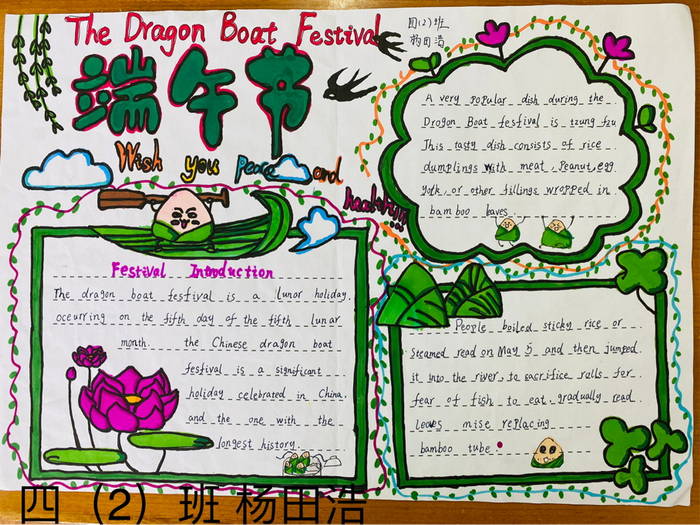 The Dragon Boat Festival
四(2)班
杨田浩
端午节
Wish you peace and
health!!!
A very popular dish during the
Dragon Boat festival is tzung tzu
This tasty dish consists of rice
dumplings with meat, Peanut, egg
York, or other fillings wropped in
bamboo leaves
Festival Introduction
The dragon boat festival is a lunor holiday.
oceurring on the fifth day of the fifth lunar
month. the Chinese dragon boat
festival is a significant
holiday celebrated in China.
and the one with the
longest history.
People boiled sticky rice or
steamed read on May 5 and then jumped
it into the river, to sacrifice rolls for
fear of fish to eat, gradually read
leaves mise replacing
bamboo tube.
四（2）班 杨田浩